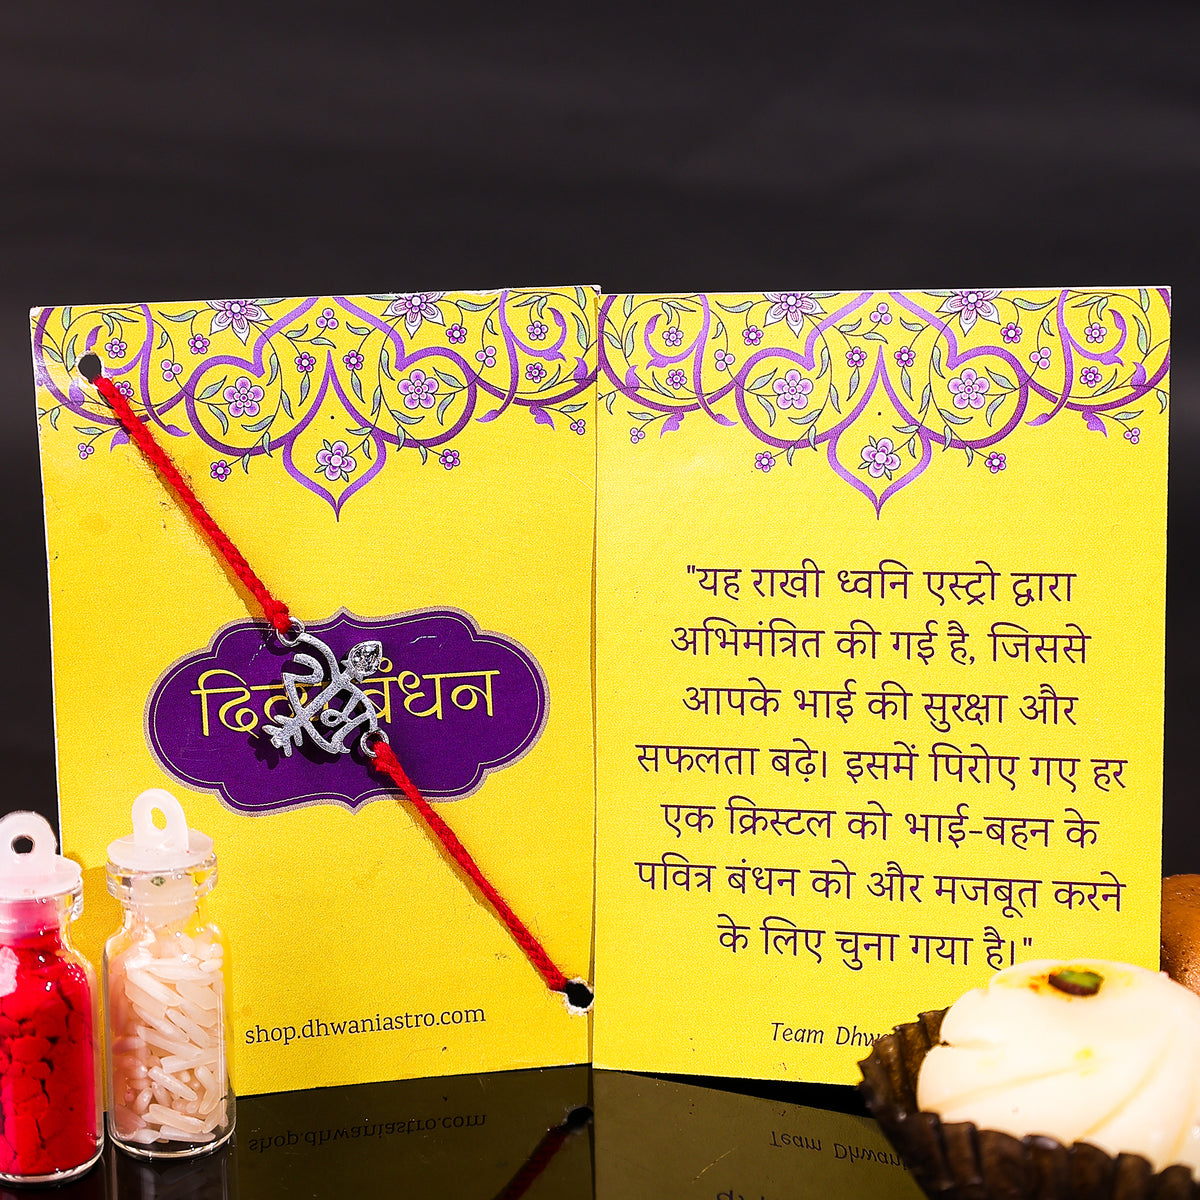 बंधन
shop.dhwaniastro.com
"यह राखी ध्वनि एस्ट्रो द्वारा
अभिमंत्रित की गई है, जिससे
आपके भाई की सुरक्षा और
सफलता बढ़े। इसमें पिरोए गए हर
एक क्रिस्टल को भाई-बहन के
पवित्र बंधन को और मजबूत करने
के लिए चुना गया है।"
Team